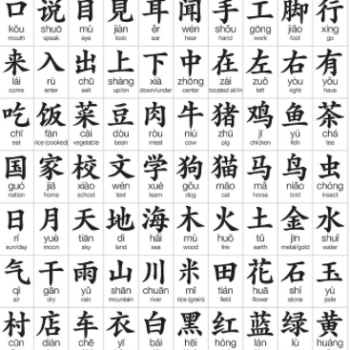 口 说 目 見 耳 闻 手 工 脚 行
kǒu shuō mù jiàn ěr wén shǒu gōng jiǎo xíng
mouth speak eye look ear hear hand work foot go
来 入 出 上 下 中 在 左 右 有
lái rù chū shàng xià zhōng zài zuǒ yòu yǒu
come enter exit up/on down/under center located at/in left right have
吃 饭 菜 豆 肉 牛 猪 鸡 鱼 茶
chī fàn cài dòu ròu niú zhū jī yú chá
eat rice (cooked) vegetable bean meat cow pig chicken fish tea
国 家 校 文 学 狗 猫 马 鸟 虫
guó jiā xiào wén xué gǒu māo mǎ niǎo chóng
nation home school text learn dog cat horse bird insect
日 月 天 地 海 木 火 土 金 水
rì yuè tiān dì hǎi mù huǒ tǔ jīn shuǐ
sun/day moon sky land sea wood fire earth metal/gold water
气 干 雨 山 川 米 田 花 石 玉
qì gān yǔ shān chuān mǐ tián huā shí yù
air dry rain mountain river rice (grain) field flower stone jade
村 店 车 衣 白 黑 红 蓝 绿 黄
cūn diàn chē yī bái hēi hóng lán lǜ huáng